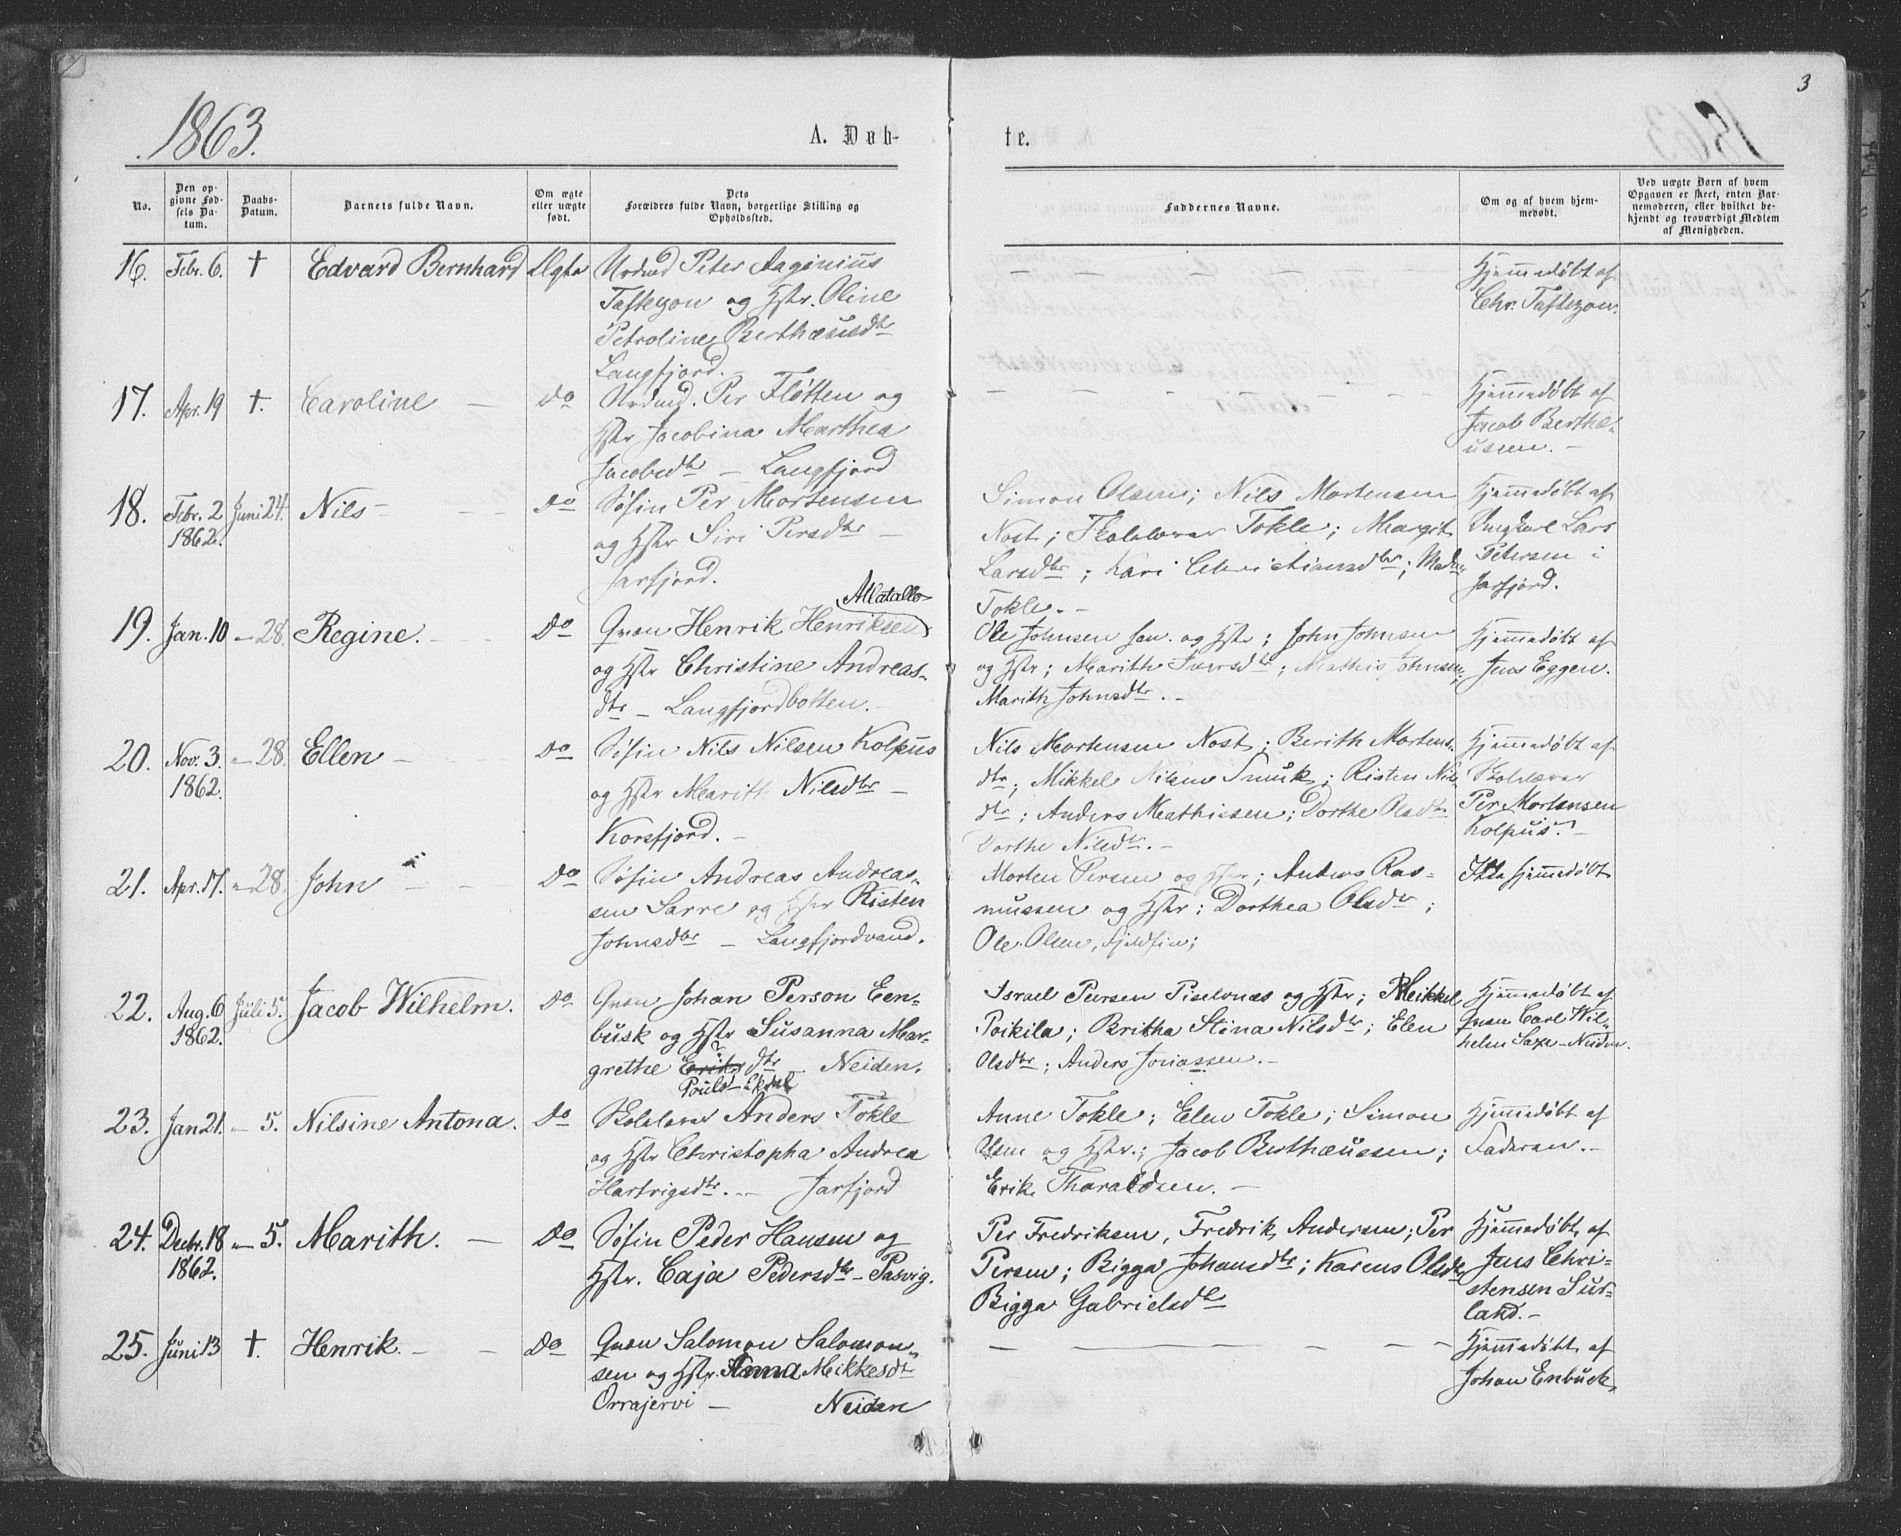 3
1863.
A. Døb-
te.
No.
Den op-
givne Fød-
sels Da-
tum.
Daabs-
Datum.
Barnets fulde Navn.
Om ægte
eller uægte
født.
Dets
Forældres fulde Navn, borgerlige Stilling og
Opholdssted.
Faddernes Navne.
Om og af hvem hjem-
medøbt.
Ved uægte Børn af hvem
Opgaven er skeet, enten Bar-
nemoderen, eller hvilket be-
kjendt og troværdigt Medlem
af Menigheden.
16. Febr. 6. † Edvard Bernhard Ægte Nrdmd Peter Aaginius — — — — Hjemmedøbt af
Taftezon og Hstr. Oline Chr. Taftezon.
Petroline Berthæusdtr
Langfjord.
17. Apr. 19 †. Caroline — do Nrdmd. Per Fløtten og — — — — Hjemmedøbt af
Hstr Jacobina Marthea Jacob Berthæ-
Jacobsdtr — Langfjord ussen. —
18. Febr. 2 Juni 24. Nils — do Søfin Per Mortensen Simon Olsen; Nils Mortensen Hjemmedøbt af
1862. og Hstr Siri Persdtr — Nost; Skolelærer Tokle; Margit Ungkarl Lars
Jarfjord. Larsdtr; Kari Christiansdtr; Mad. Petersen i
Tokle. — Jarfjord.
19. Jan. 10 — 28. Regine. — do Qvæn Henrik Henriksen Matallo- Ole Johnsen sen. og Hstr; John Johnsen Hjemmedøbt af
og Hstr Christine Andreas- og Hstr; Marith Iversdtr; Mathis Johnsen; Jens Eggen.
dtr — Langfjordbotten. — Marith Johnsdtr. —
20. Nov. 3. — 28. Ellen — do Søfin Nils Nilsen Kolpus Nils Mortensen Nost; Berith Mortens- Hjemmedøbt af
1862. og Hstr Marith Nilsdtr — dtr; Mikkel Nilsen Smuk; Risten Nils- Skolelærer
Korsfjord. — dtr; Anders Mathissen; Dorthe Olsdtr Per Mortensen
Dorthe Nilsdtr. — Kolpus. —
21. Apr. 17. — 28. John — do Søfin Andreas Andreas- Morten Persen og Hstr; Anders Ras- Ikke hjemmedøbt
sen Sarre og Hstr Risten mussen og Hstr; Dorthea Olsdtr;
Johnsdtr — Langfjordvand. Ole Olsen, Fjeldfin;
22. Aug. 6 Juli 5. Jacob Wilhelm. do Qvæn Johan Person Een- Israel Persen Piselvnæs og Hstr; Meikkel Hjemmedøbt af
1862. busk og Hstr Susanna Mar- Poikila; Britha Stina Nilsdtr; Elen Qvæn Carl Wil-
grethe Eriksdtr — Neiden. Olsdtr; Anders Joniassen. — helm Saxe — Neiden.
Pouls- Ekdal
23. Jan 21. — 5. Nilsine Antona. do Skolelærer Anders Tokle Anne Tokle; Elen Tokle; Simon Hjemmedøbt af
og Hstr Christopha Andrea Olsen og Hstr.; Jacob Berthæussen; Faderen. —
Hartvigsdtr. — Jarfjord Erik Tharaldsen. —
24. Decbr. 18 — 5. Marith. — do Søfin Peder Hansen og Per Fredriksen, Fredrik Andersen; Per Hjemmedøbt af
1862. Hstr. Caja Pedersdtr — Pasvig. Persen; Bigga Johansdtr; Karens Olsdtr Jens Chri-
Bigga Gabrielsdtr stensen Sur-
land. —
25. Juni 13 †. Henrik. — do Qvæn Salomon Salomon- — — — — Hjemmedøbt af
sen og Hstr. Anna Mikkesdtr Johan Enbusk.
Orrajervi — Neiden